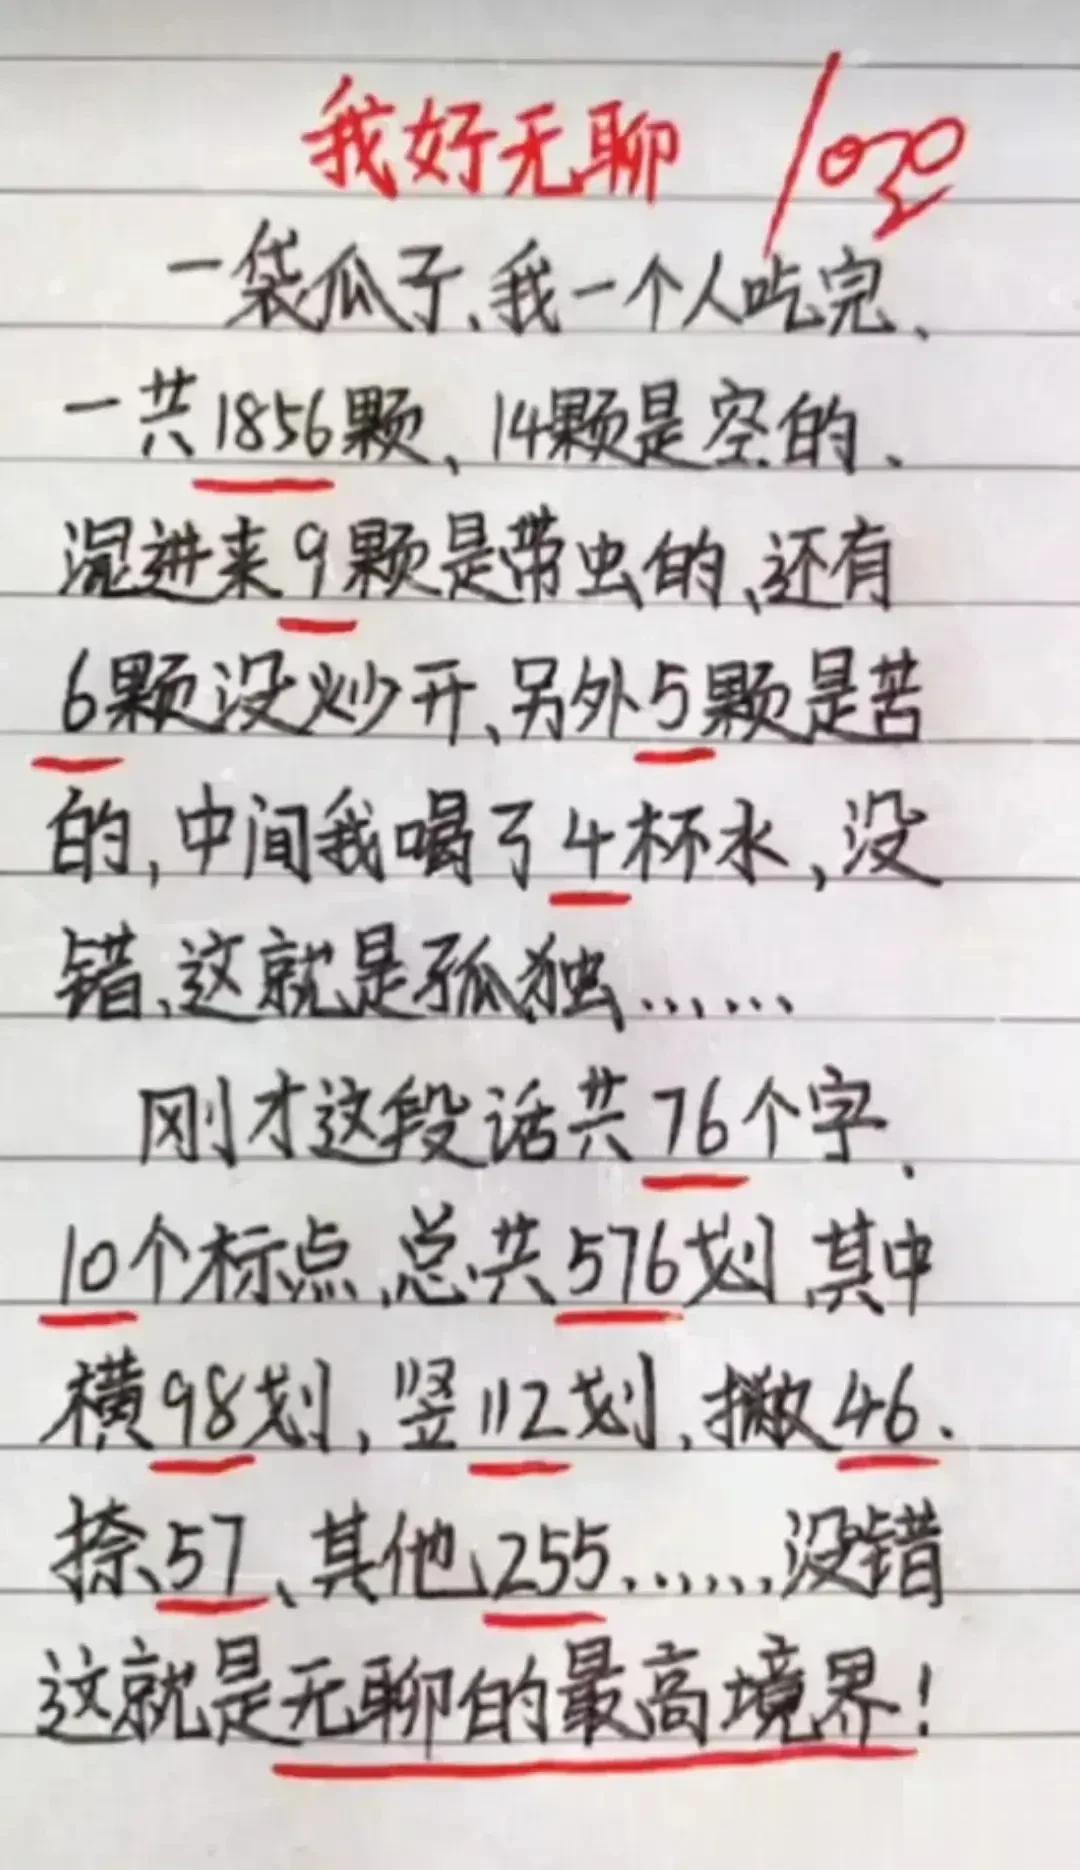 我好无聊 100
一袋瓜子、我一个人吃完、
一共1856颗、14颗是空的、
混进来9颗是带虫的、还有
6颗没炒开、另外5颗是苦
的,中间我喝了4杯水,没
错、这就是孤独......
刚才这段话共76个字、
10个标点、总共576划、其中
横98划,竖112划,撇46、
捺57、其他255......没错
这就是无聊的最高境界!